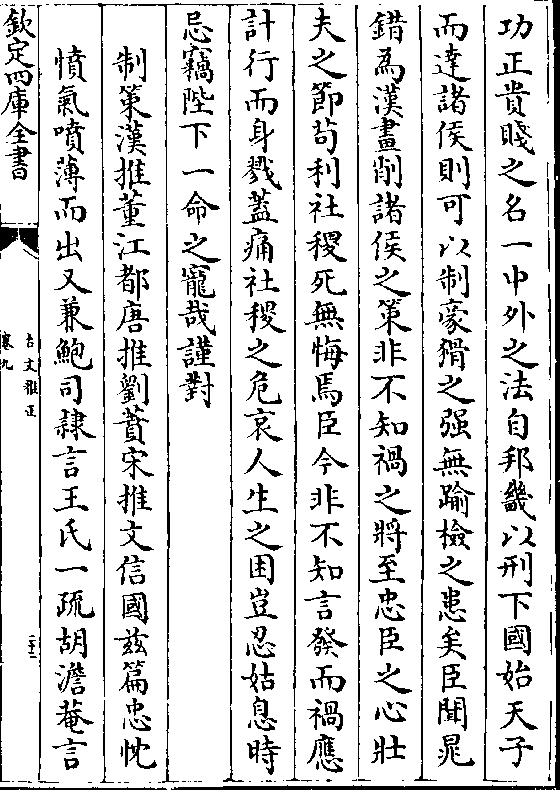 功正貴賤之名一中外之法自邦畿以刑下國始天子
而達諸侯則可以制豪猾之强無踰檢之患矣臣聞晁
錯為漢畫削諸侯之策非不知禍之將至忠臣之心壯
夫之節苟利社稷死無悔焉臣今非不知言發而禍應
計行而身戮蓋痛社稷之危哀人生之困豈忍姑息時
忌竊陛下一命之寵哉謹對
制策漢推董江都唐推劉蕡宋推文信國兹篇忠忱
憤氣噴薄而出又兼鮑司隸言王氏一疏胡澹菴言
欽定四庫全書
古文雅正
卷九